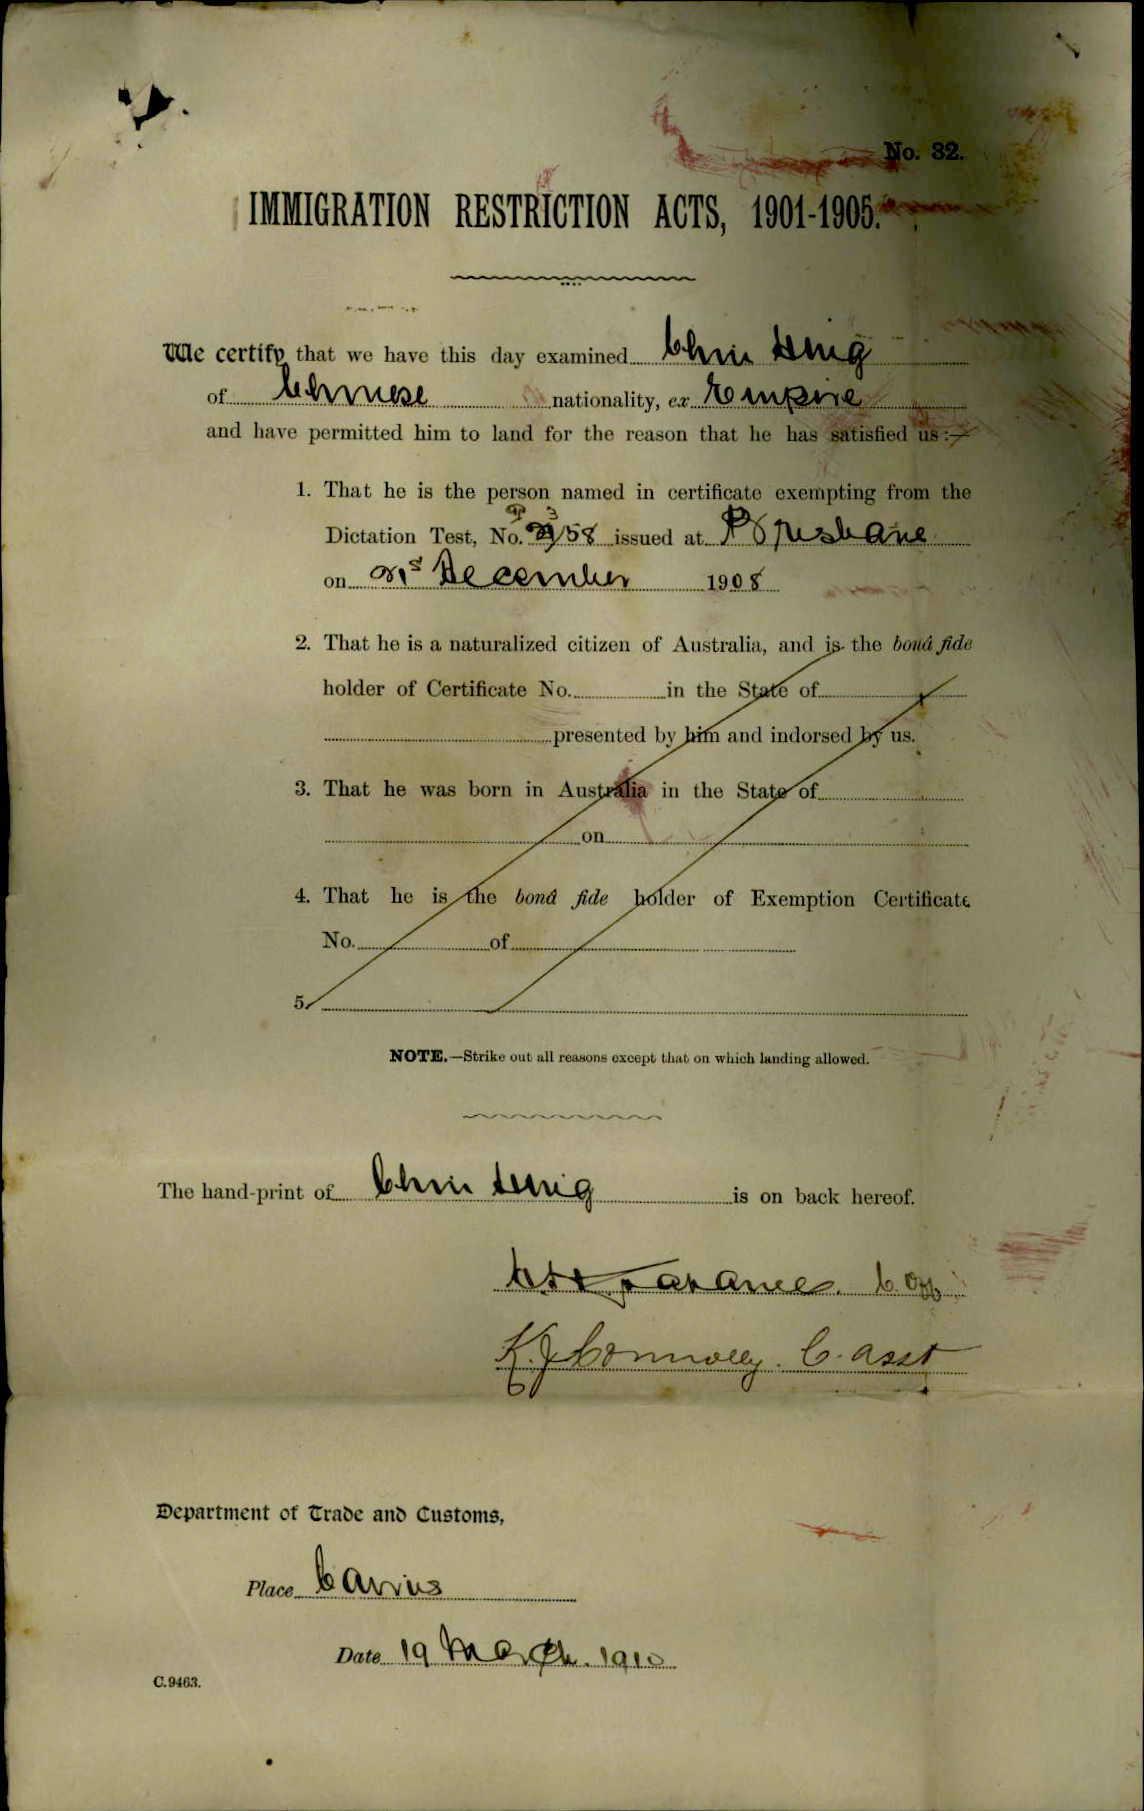 No. 32.
IMMIGRATION RESTRICTION ACTS, 1901-1905.
We certify that we have this day examined Chin
of Chinese nationality, ex Empire
and have permitted him to land for the reason that he has satisfied us:—
1. That he is the person named in certificate exempting from the
Dictation Test, No. /58 issued at Brisbane
on 21st December 1908
2. That he is a naturalized citizen of Australia, and is the bonâ fide
holder of Certificate No. in the State of
presented by him and indorsed by us.
3. That he was born in Australia in the State of
on
4. That he is the bonâ fide holder of Exemption Certificate
No. of
5.
NOTE.—Strike out all reasons except that on which landing allowed.
The hand-print of Chin is on back hereof.
C. Off
K. J. Connolly. C. asst
Department of Trade and Customs,
Place Cairns
Date 19 March. 1910
C.9463.